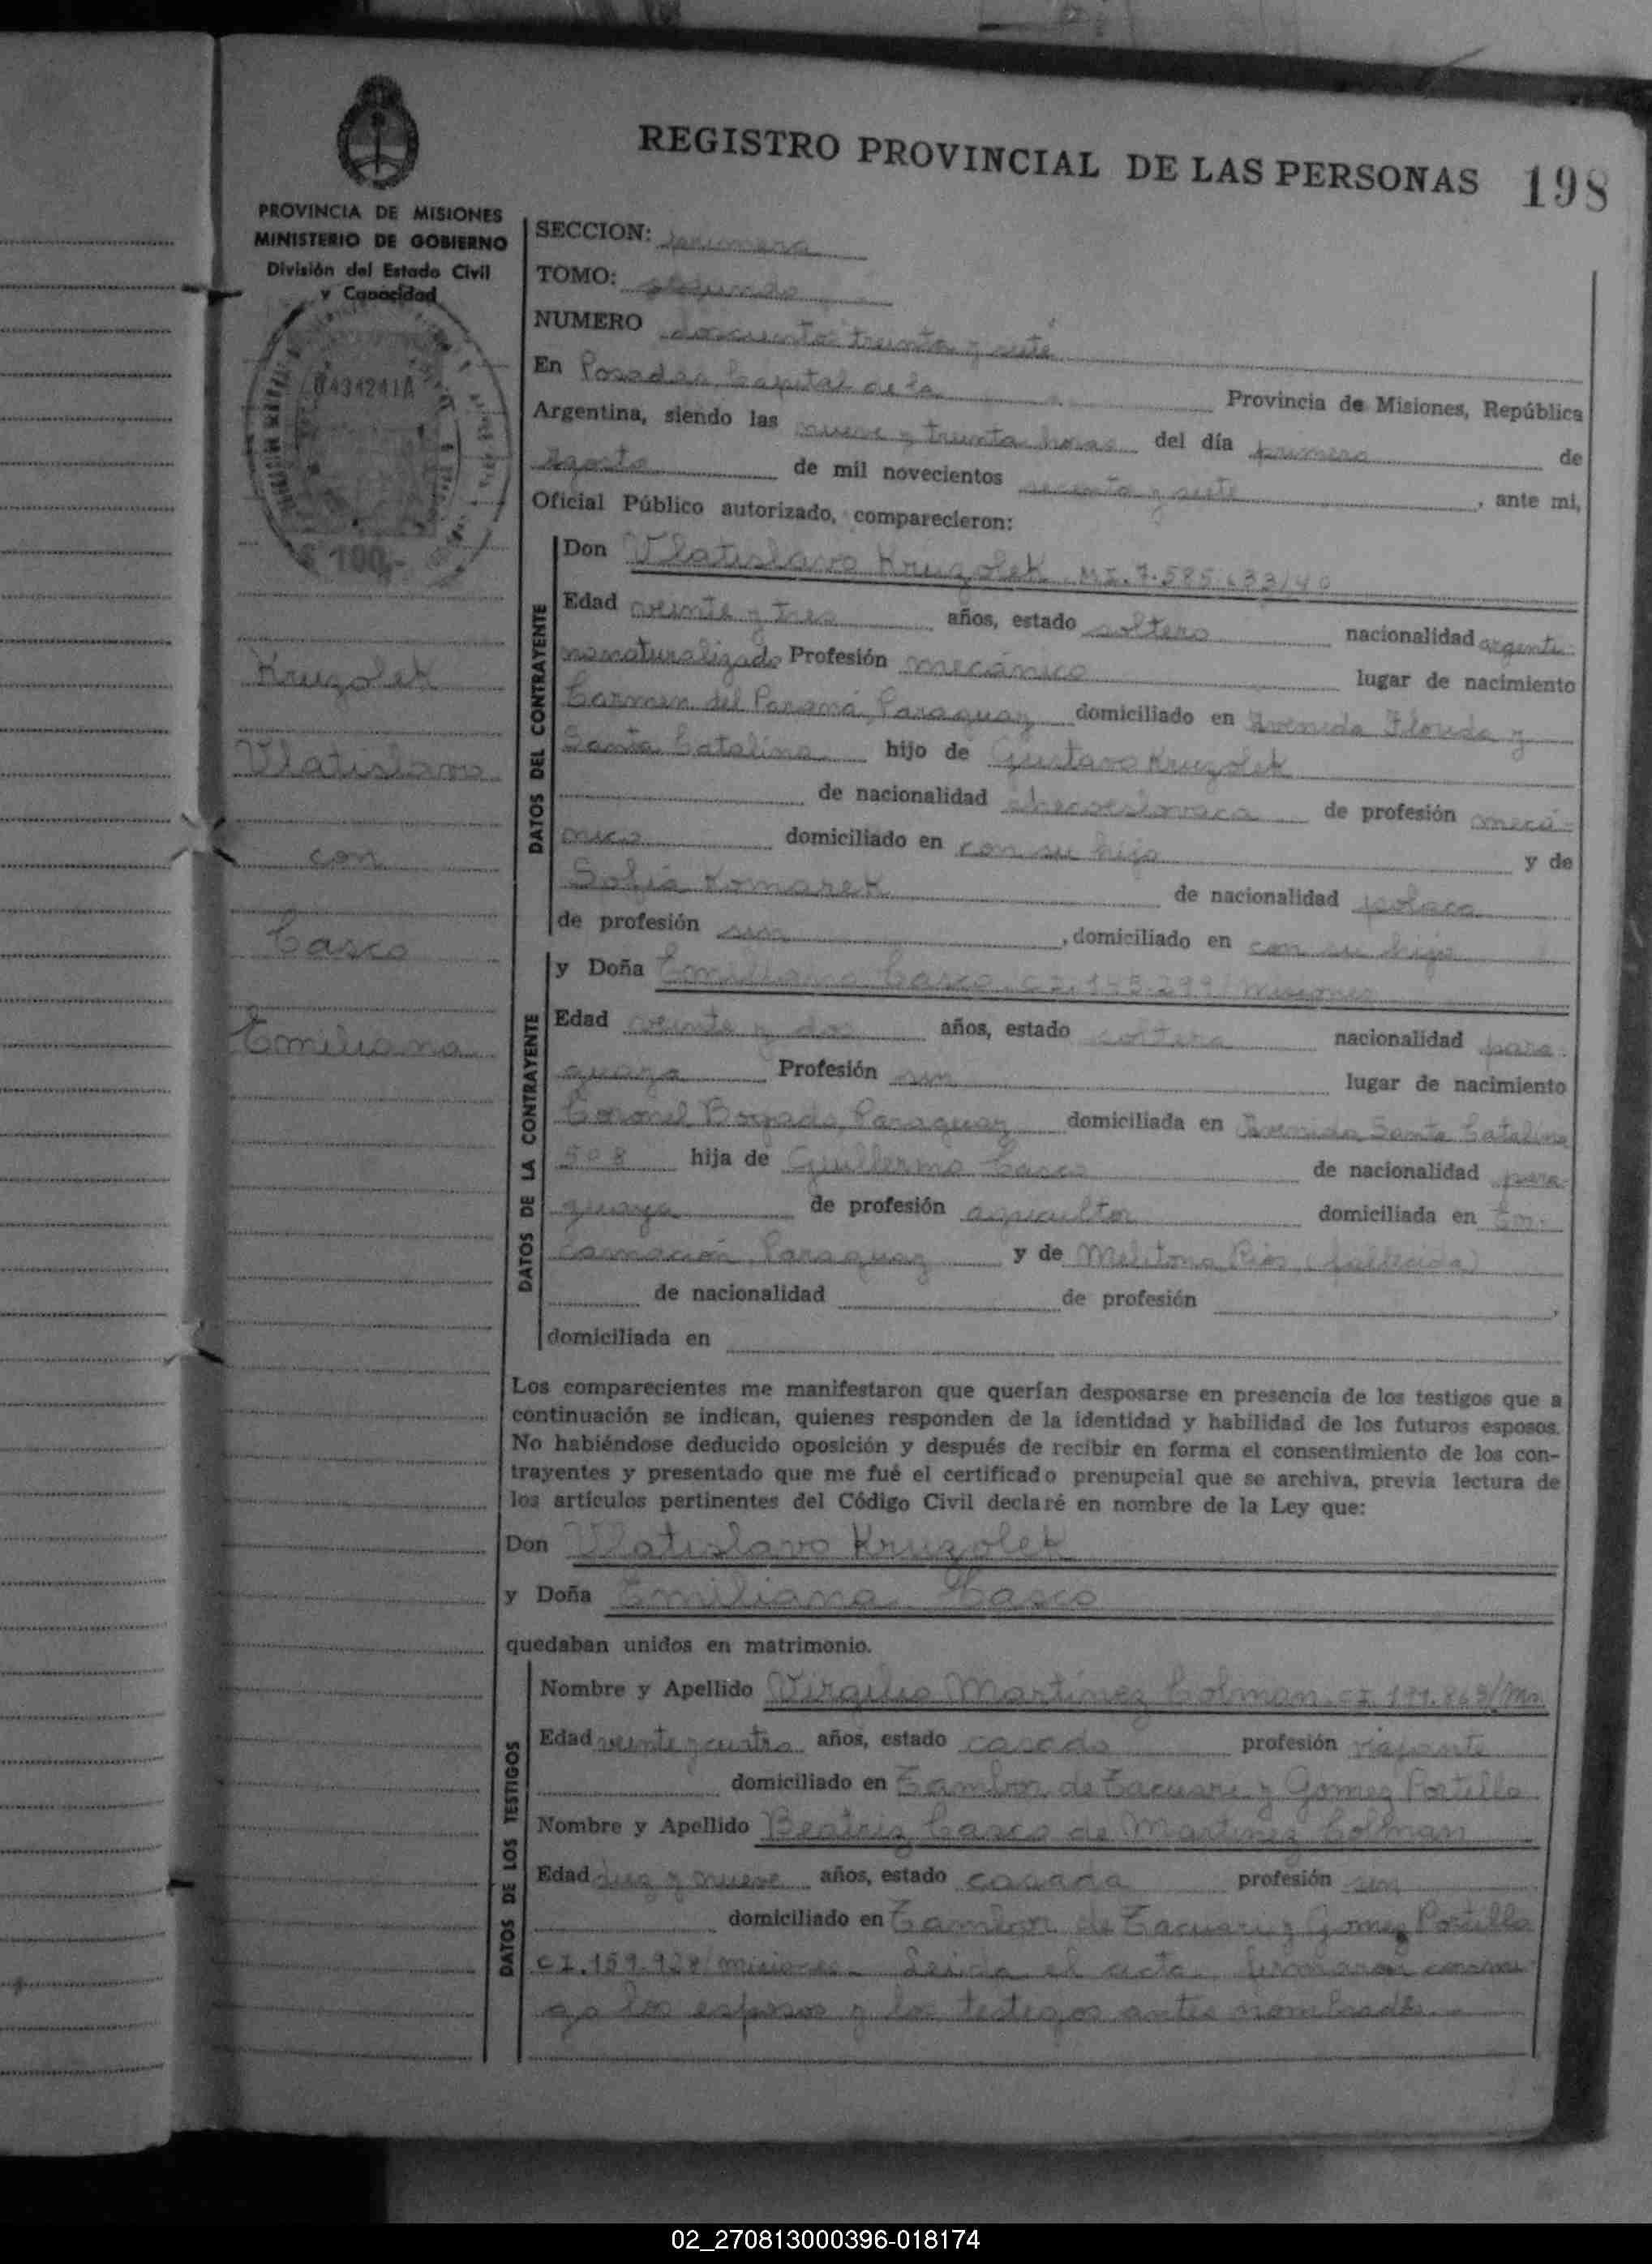 REGISTRO PROVINCIAL DE LAS PERSONAS 198
PROVINCIA DE MISIONES
MINISTERIO DE GOBIERNO
División del Estado Civil
y Capacidad
0434241A
$ 100,-
Kruzolek
Vlatislavo
con
Casco
Emiliana
SECCION: primera
TOMO: segundo
NUMERO doscientos treinta y siete
En Posadas, Capital de la Provincia de Misiones, República
Argentina, siendo las nueve y treinta horas del día primero de
agosto de mil novecientos sesenta y siete, ante mi,
Oficial Público autorizado, comparecieron:
DATOS DEL CONTRAYENTE
Don Vlatislavo Kruzolek MI. 7.585.633/40
Edad veinte y tres años, estado soltero nacionalidad argenti-
no naturalizado Profesión mecánico lugar de nacimiento
Carmen del Paraná, Paraguay domiciliado en Avenida Florida y
Santa Catalina hijo de Gustavo Kruzolek
de nacionalidad checoeslovaca de profesión mecá-
nico domiciliado en con su hijo y de
Sofia Komarek de nacionalidad polaca
de profesión sin, domiciliado en con su hijo
DATOS DE LA CONTRAYENTE
y Doña Emiliana Casco, CI. 145.299/Misiones
Edad veinte y dos años, estado soltera nacionalidad para-
guaya Profesión sin lugar de nacimiento
Coronel Bogado, Paraguay domiciliada en Avenida Santa Catalina
508 hija de Guillermo Casco de nacionalidad para-
guaya de profesión agricultor domiciliada en En-
carnación, Paraguay y de Melitona Rios (fallecida)
de nacionalidad de profesión
domiciliada en
Los comparecientes me manifestaron que querían desposarse en presencia de los testigos que a
continuación se indican, quienes responden de la identidad y habilidad de los futuros esposos.
No habiéndose deducido oposición y después de recibir en forma el consentimiento de los con-
trayentes y presentado que me fué el certificado prenupcial que se archiva, previa lectura de
los artículos pertinentes del Código Civil declaré en nombre de la Ley que:
Don Vlatislavo Kruzolek
y Doña Emiliana Casco
quedaban unidos en matrimonio.
DATOS DE LOS TESTIGOS
Nombre y Apellido Virgilio Martinez Colman CI. 191.869/Mns
Edad veinte y cuatro años, estado casado profesión viajante
domiciliado en Tambor de Tacuari y Gomez Portillo
Nombre y Apellido Beatriz Casco de Martinez Colman
Edad diez y nueve años, estado casada profesión sin
domiciliado en Tambor de Tacuari y Gomez Portillo
CI. 159.928/misiones. Leida el acta firmaron conmi-
go los esposos y los testigos antes nombrados.
02_270813000396-018174